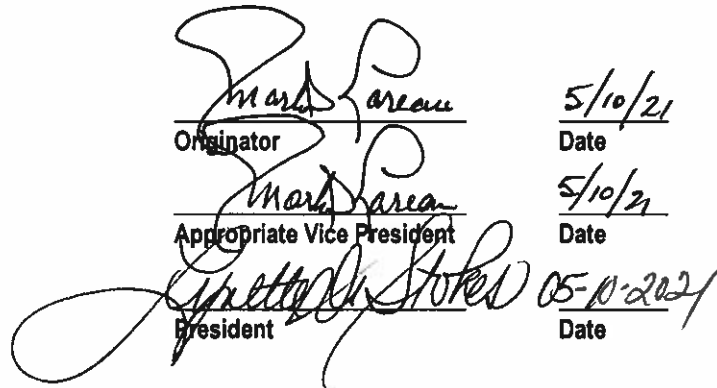 Mark Lareau 5/10/21
Originator Date
Mark Lareau 5/10/21
Appropriate Vice President Date
Lynette D. Stokes 05-10-2021
President Date